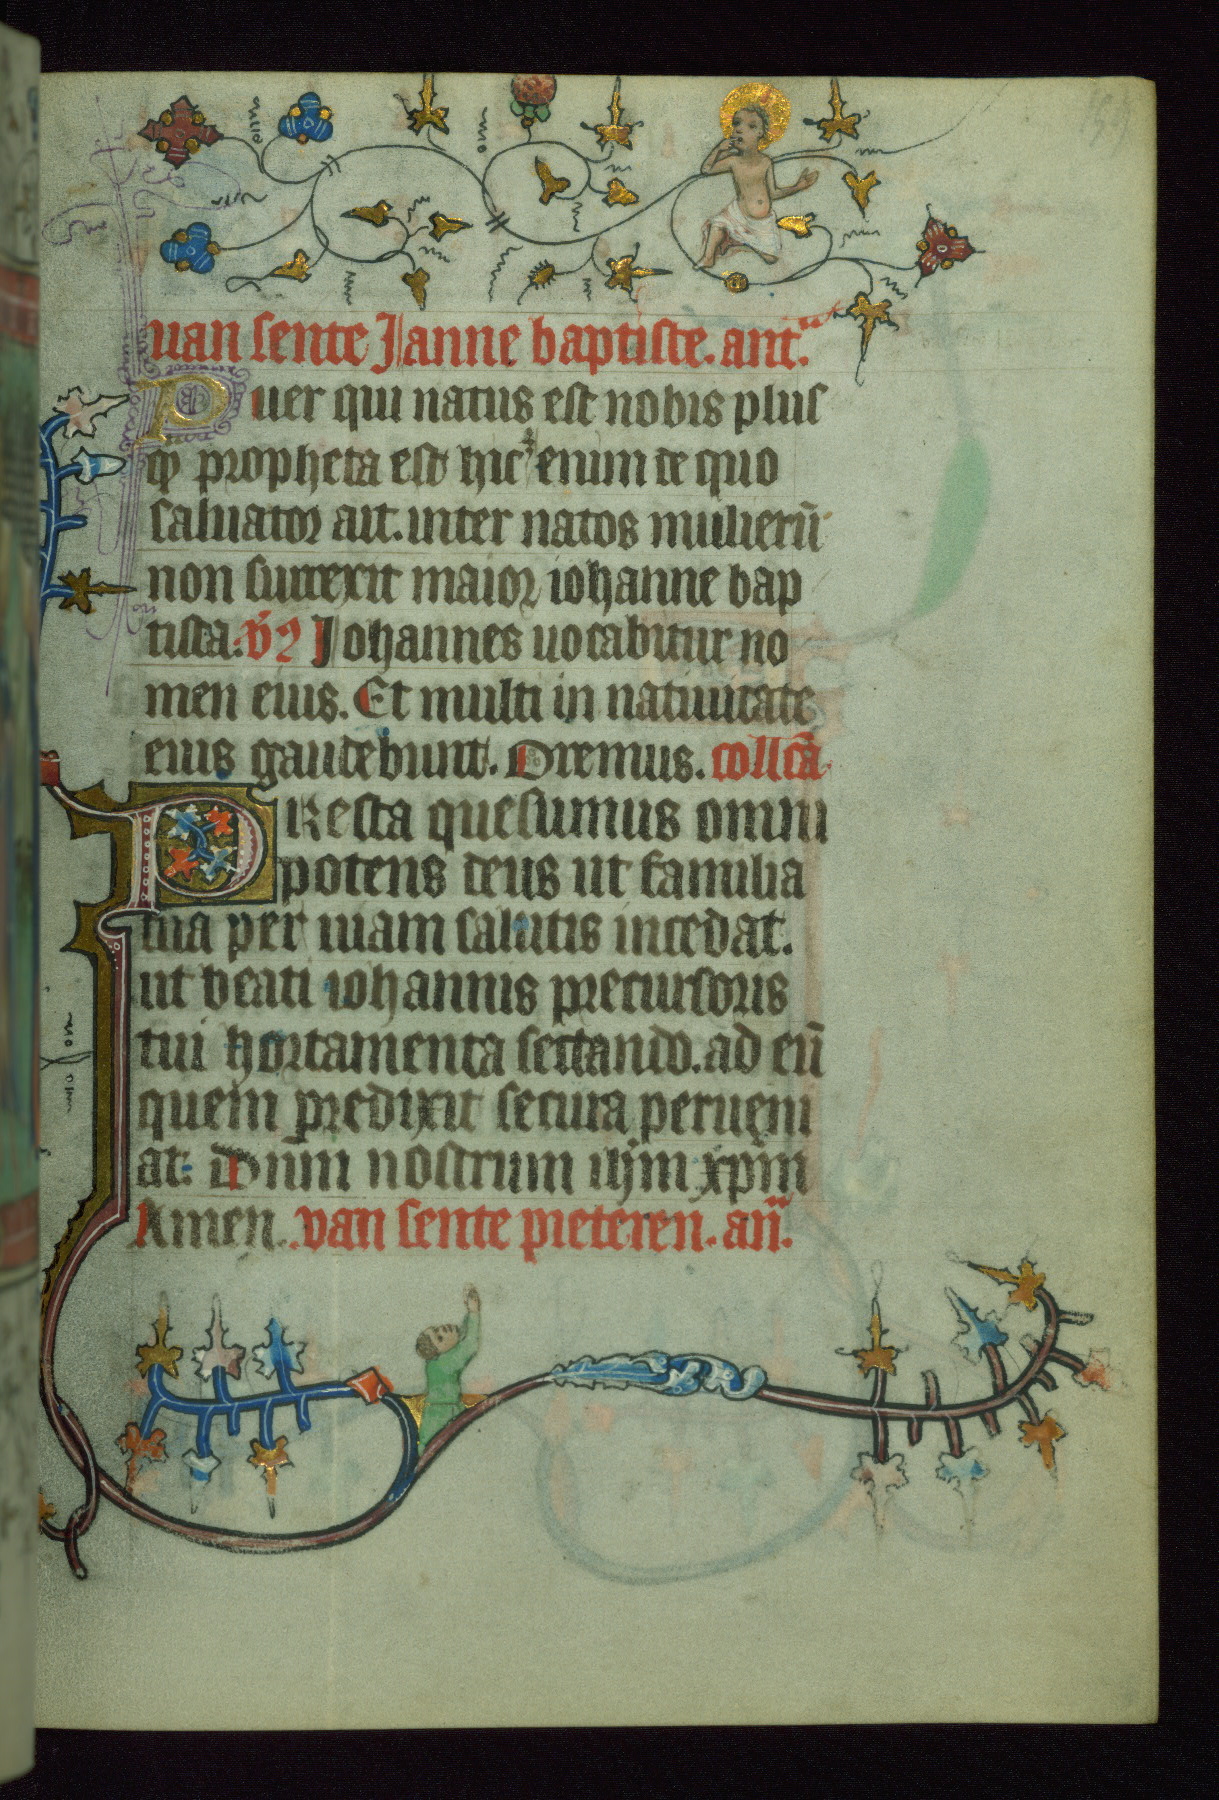 van sente Janne baptiste. ant.
Puer qui natus est nobis plus
qͫ propheta est hic enim de quo
saluator ait. inter natos mulierū
non surrexit maior iohanne bap
tista. Johannes uocabitur no
men eius. Et multi in natiuitate
eius gaudebunt. Oremus. collcā
PResta quesumus omni
potens deus ut familia
tua per uiam salutis incedat.
ut beati iohannis precursoris
tui hortamenta sectando. ad eū
quem predixit secura perueni
at. Dnm nostrum ihm xpm
Amen. van sente pieteren. an̄.